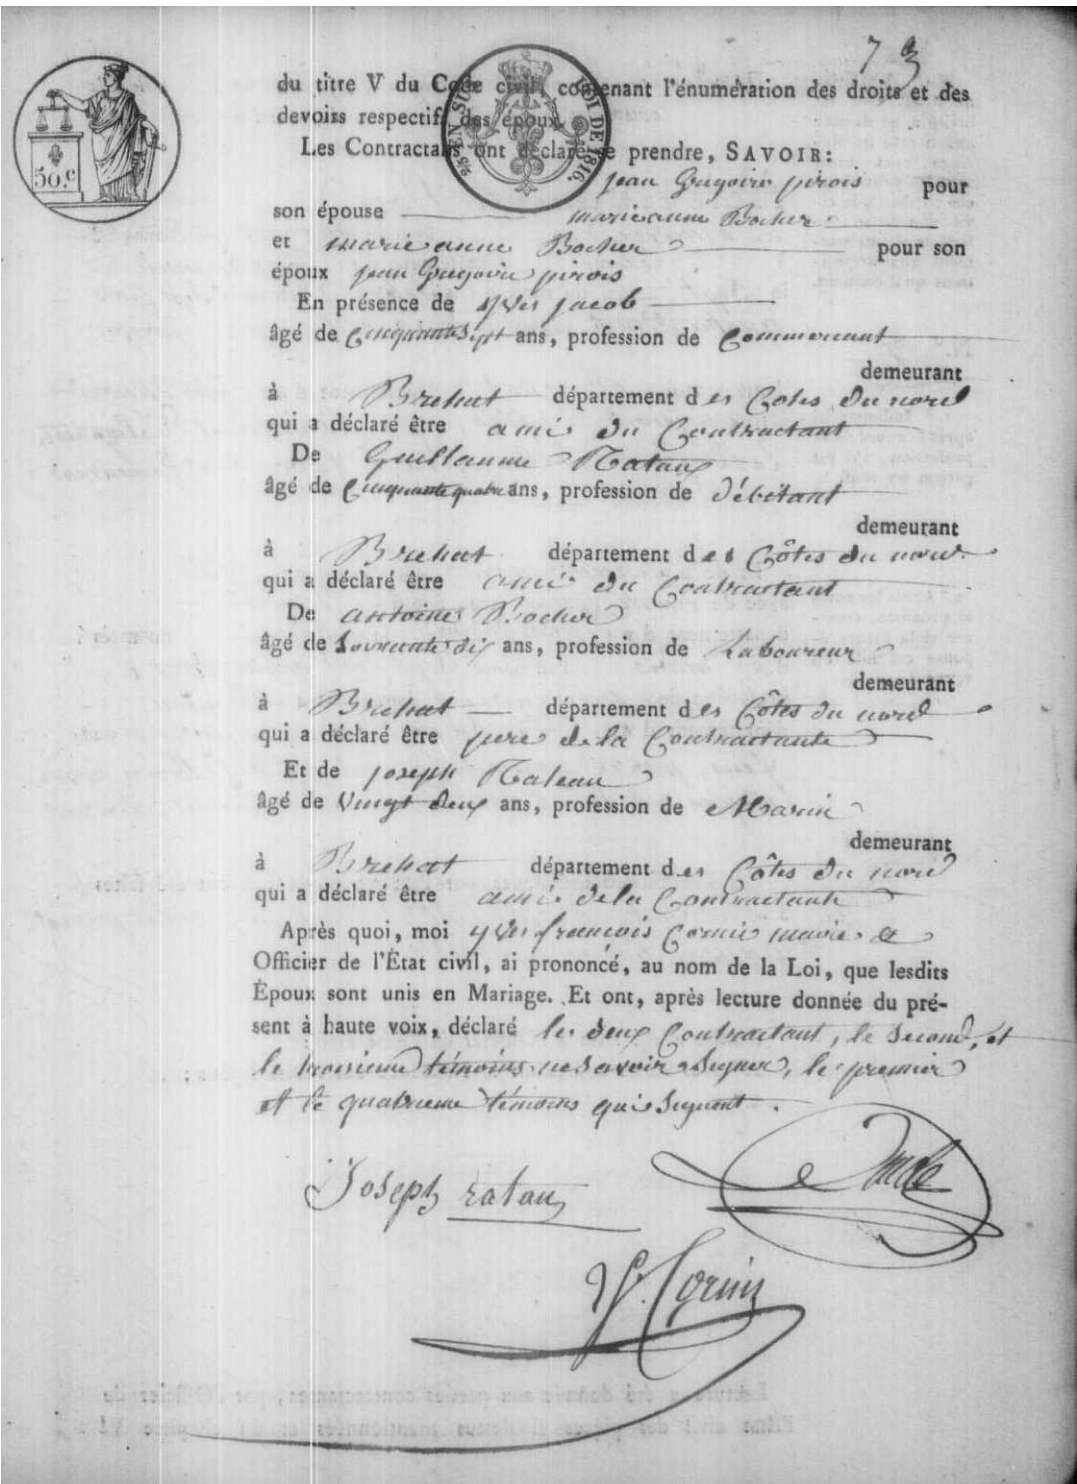 73
50.c
EN SUS
LOI DE 1816.
du titre V du Code civil, contenant l'énumération des droits et des
devoirs respectifs des époux.
Les Contractans ont déclaré se prendre, SAVOIR:
jean Gregoire pirois pour
son épouse marie anne Bocher
et marie anne Bocher pour son
époux jean Gregoire pirois
En présence de yves jacob
âgé de Cinquante Sept ans, profession de Commercant
demeurant
à Brehat département des Cotes du nord
qui a déclaré être ami du Contractant
De Guillaume Rataux
âgé de Cinquante quatre ans, profession de débitant
demeurant
à Brehat département des Côtes du nord
qui a déclaré être ami du Contractant
De antoine Bocher
âgé de Soixante dix ans, profession de Laboureur
demeurant
à Brehat département des Côtes du nord
qui a déclaré être pere de la Contractante
Et de joseph Rateau
âgé de Vingt deux ans, profession de Marin
demeurant
à Brehat département des Côtes du nord
qui a déclaré être ami de la Contractante
Après quoi, moi yves francois Cornic maire et
Officier de l'État civil, ai prononcé, au nom de la Loi, que lesdits
Époux sont unis en Mariage. Et ont, après lecture donnée du pré-
sent à haute voix, déclaré les deux Contractant, le Second, et
le troisieme témoins ne Savoir Signer, le premier
et le quatrieme témoins qui Signent.
Joseph ratau
yf. Cornic